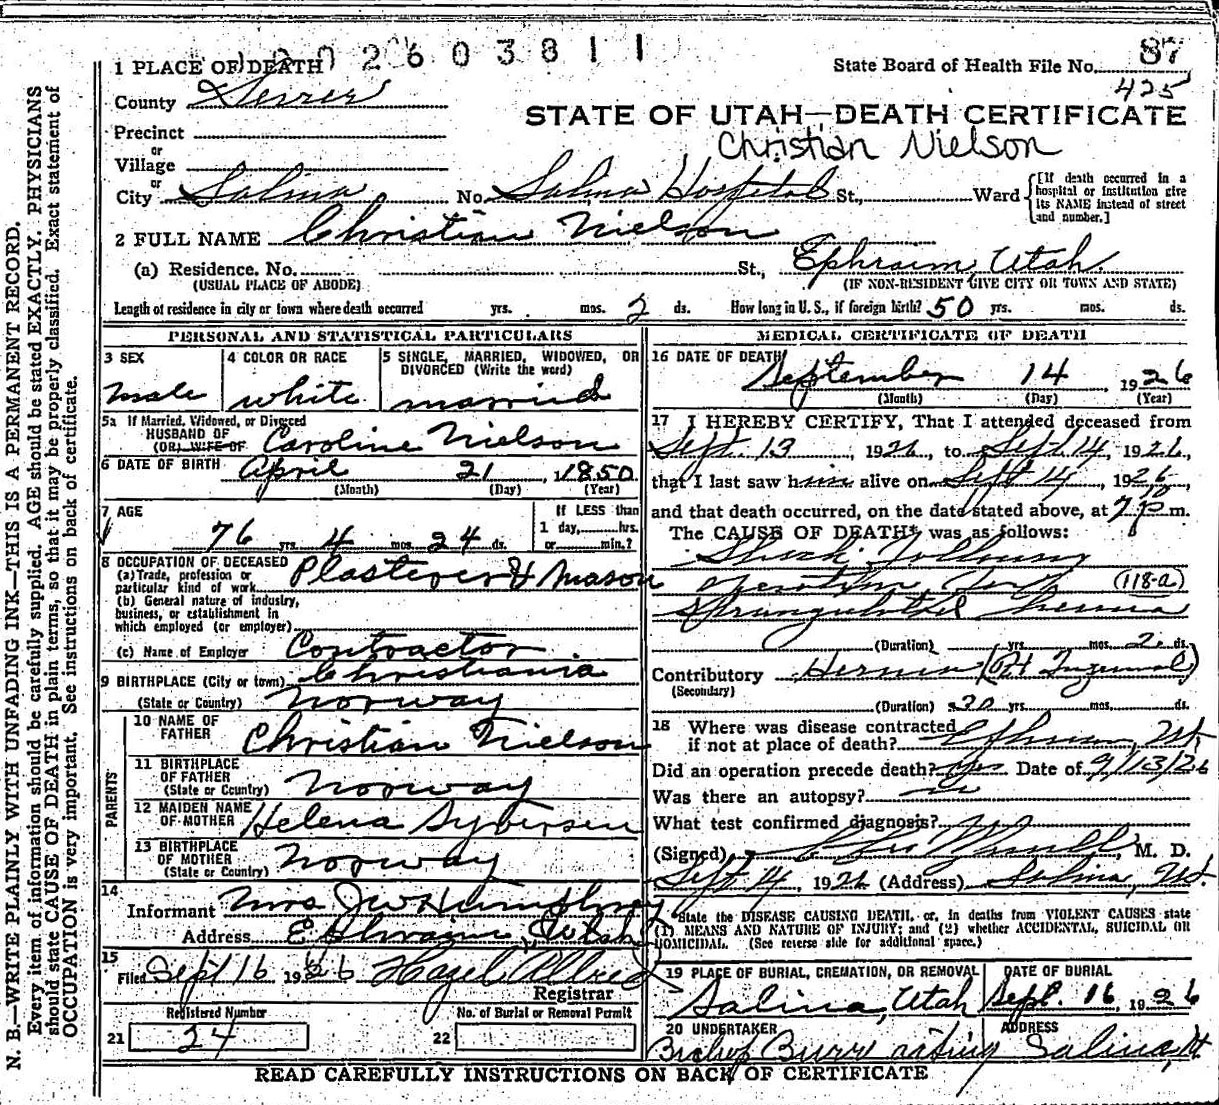 2603811
1 PLACE OF DEATH
State Board of Health File No. 87
425
County Sevier
STATE OF UTAH—DEATH CERTIFICATE
Precinct
Christian Nielson
or
Village
or
City Salina No. Salina Hospital St., Ward
[If death occurred in a hospital or institution give its NAME instead of street and number.]
2 FULL NAME Christian Nielson
(a) Residence. No. St., Ephraim, Utah.
(USUAL PLACE OF ABODE) (IF NON-RESIDENT GIVE CITY OR TOWN AND STATE)
Length of residence in city or town where death occurred yrs. mos. 2 ds. How long in U. S., if foreign birth? 50 yrs. mos. ds.
PERSONAL AND STATISTICAL PARTICULARS
3 SEX
male
4 COLOR OR RACE
white
5 SINGLE, MARRIED, WIDOWED, OR DIVORCED (Write the word)
married
5a If Married, Widowed, or Divorced
HUSBAND OF
(OR) WIFE OF Caroline Nielson
6 DATE OF BIRTH April 21, 1850
(Month) (Day) (Year)
7 AGE
76 yrs. 4 mos. 24 ds.
If LESS than
1 day, hrs.
or min.?
8 OCCUPATION OF DECEASED
(a) Trade, profession or
particular kind of work Plasterer & Mason
(b) General nature of industry,
business, or establishment in
which employed (or employer)
(c) Name of Employer Contractor
9 BIRTHPLACE (City or town) Christiania
(State or Country) Norway
PARENTS
10 NAME OF
FATHER Christian Nielson
11 BIRTHPLACE
OF FATHER
(State or Country) Norway
12 MAIDEN NAME
OF MOTHER Helena Syversen
13 BIRTHPLACE
OF MOTHER
(State or Country) Norway
14
Informant Mrs J W Humphrey
Address Ephraim, Utah
15
Filed Sept 16 1926 Hazel Allred
Registrar
Registered Number
21 24
No. of Burial or Removal Permit
22
MEDICAL CERTIFICATE OF DEATH
16 DATE OF DEATH
September 14, 1926
(Month) (Day) (Year)
17 I HEREBY CERTIFY, That I attended deceased from
Sept. 13, 1926, to Sept. 14, 1926,
that I last saw him alive on Sept 14, 1926,
and that death occurred, on the date stated above, at 7 10 p m.
The CAUSE OF DEATH* was as follows:
Shock following
operation for (118-a)
Strangulated hernia
(Duration) yrs. mos. 2 ds.
Contributory Hernia (Rt Inguinal)
(Secondary)
(Duration) 30 yrs. mos. ds.
18 Where was disease contracted
if not at place of death? Ephraim, Ut.
Did an operation precede death? yes Date of 9/13/26
Was there an autopsy? no
What test confirmed diagnosis?
(Signed), M. D.
Sept 14, 1926 (Address) Salina, Ut.
*State the DISEASE CAUSING DEATH, or, in deaths from VIOLENT CAUSES state
(1) MEANS AND NATURE OF INJURY; and (2) whether ACCIDENTAL, SUICIDAL OR
HOMICIDAL. (See reverse side for additional space.)
19 PLACE OF BURIAL, CREMATION, OR REMOVAL
Salina, Utah
DATE OF BURIAL
Sept. 16, 1926
20 UNDERTAKER
Bishop Burr acting
ADDRESS
Salina, Ut.
READ CAREFULLY INSTRUCTIONS ON BACK OF CERTIFICATE
N. B.—WRITE PLAINLY WITH UNFADING INK—THIS IS A PERMANENT RECORD.
Every item of information should be carefully supplied. AGE should be stated EXACTLY. PHYSICIANS
should state CAUSE OF DEATH in plain terms, so that it may be properly classified. Exact statement of
OCCUPATION is very important. See instructions on back of certificate.